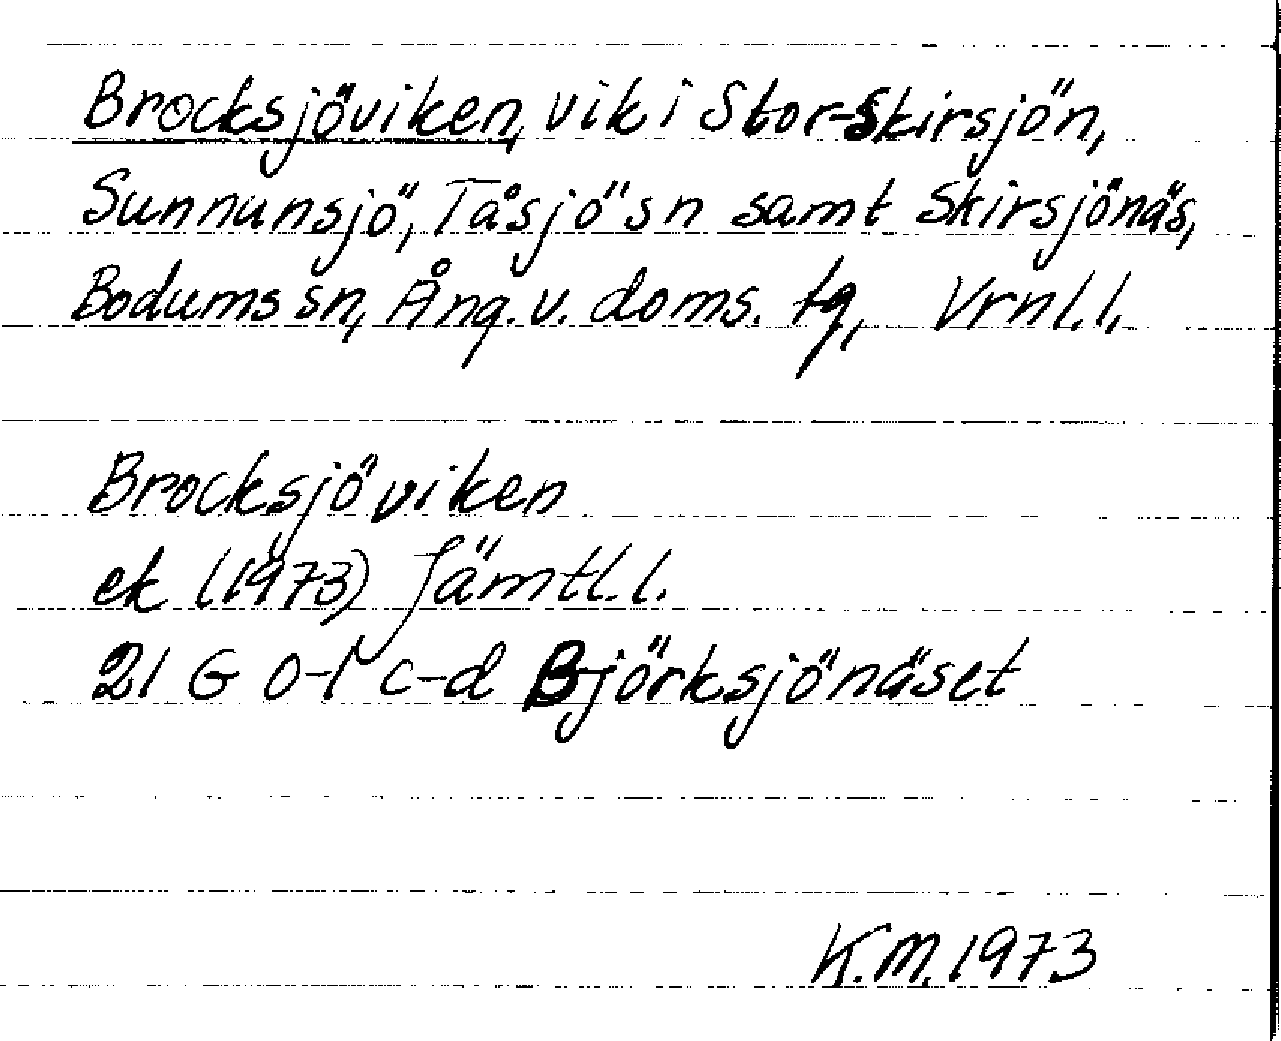 Brocksjöviken, vik i Stor-Skirsjön,
Sunnansjö, Tåsjö sn samt Skirsjönäs,
Bodums sn, Ång. v. doms. tg, Vrnl. l.
Brocksjöviken
ek (1973) Jämtl. l.
21 G 0-1 c-d Björksjönäset
K.M. 1973